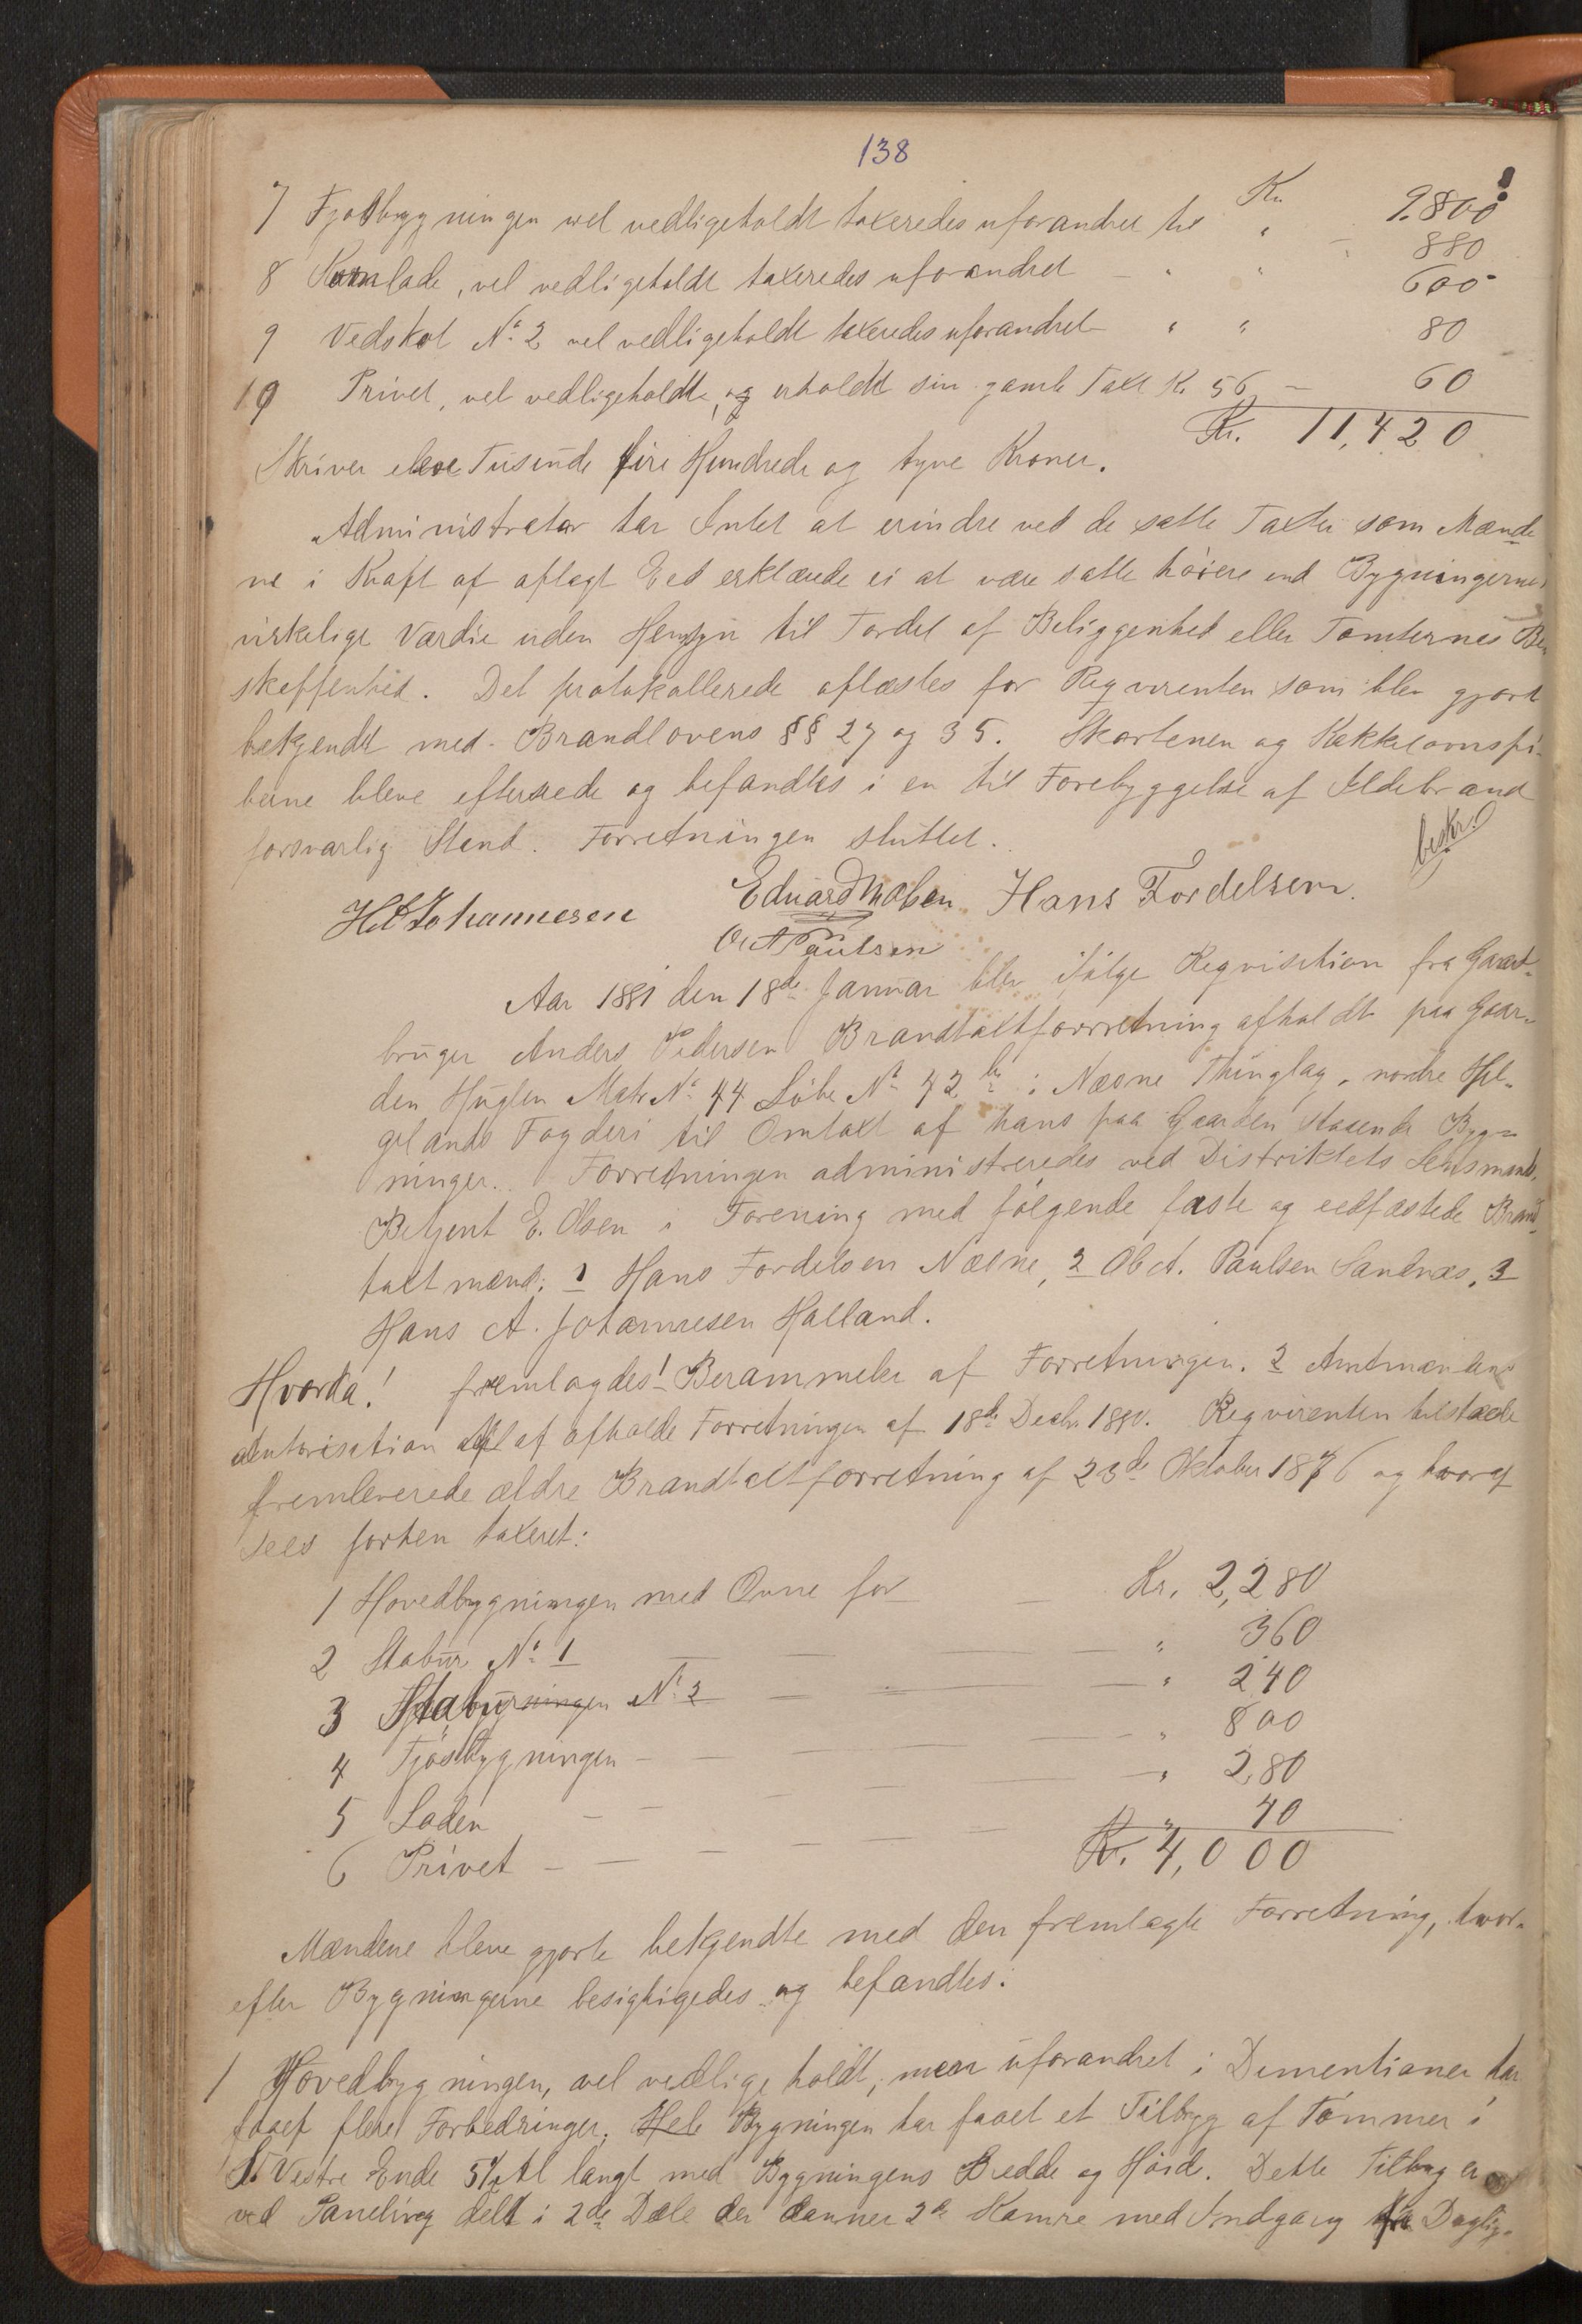 138
Kr. 9.800
7 Fjøsbygningen vel vedligeholdt taxeredes uforandret til " - 880
8 Kornlade, vel vedligeholdt taxeredes uforandret - " " 600
9 Vedskot No 2 vel vedligeholdt taxeredes uforandret " " 80
10 Privet, vel vedligeholdt, og erholdt sin gamle Taxt Kr 56 - 60
Kr. 11,420
Skriver elleve Tusinde fire Hundrede og tyve Kroner.
Administrator har Intet at erindre ved de satte Taxter som Mænde
ne i Kraft af aflagt Eed erklærede ei at være satte høiere end Bygningernes
virkelige Værdie uden Hensyn til Fordel af Beliggenhed eller Tomternes Be
skaffenhed. Det protokollerede oplæstes for Reqvirenten som blev gjort
bekjendt med Brandlovens §§ 27 og 35. Skorstenen og Kakkelovnspi-
berne bleve efterseede og befandtes i en til Forebyggelse af Ildebrand
forsvarlig Stand. Forretningen sluttet.
beskr.
H A Johannesen Eduard Hans Fordelsen.
Ol A Paulsen
Aar 1891 den 18de Januar blev ifølge Reqvisition fra Gaard-
bruger Anders Pedersen Brandtaxtforretning afholdt paa Gaar-
den Huglen Matr No 44 Løbe No 42 b i Næsne Thinglag, nordre Hel-
gelands Fogderi til Omtaxt af hans paa Gaarden staaende Byg-
ninger. Forretningen administreredes ved Distriktets Lensmands
Betjent E. Olsen i Forening med følgende faste og eedfæstede Brand
taxtmænd: 1 Hans Fordelsen Næsne, 2 Ol A. Paulsen Sandnæs, 3
Hans A. Johannesen Halland.
Hvorda! fremlagdes 1 Berammelse af Forretningen. 2 Amtmandens
Autorisation til at afholde Forretningen af 18de Decbr 1890. Reqvirenten tilstæde
fremleverede ældre Brandtaxtforretning af 23de Oktober 1876 og hvoraf
sees forhen taxeret:
1 Hovedbygningen med Ovne for - Kr. 2,280
2 Stabur No 1 - " 360
3 Stabur No 2 - " 240
4 Fjøsbygningen - " 800
5 Laden - " 280
6 Privet - " 40
Kr. 4,000
Mændene bleve gjorte bekjendte med den fremlagte Forretning, hvor-
efter Bygningerne besigtigedes og befandtes:
1 Hovedbygningen, vel vedligeholdt, men uforandret i Dimentioner har
faaet flere Forbedringer. Hele Bygningen har faaet et Tilbyg af Tømmer i
Vestre Ende 5½ Al langt med Bygningens Bredde og Høide. Dette Tilbyg er
ved Paneling delt i 2de Dele der danner 2de Kamre med Indgang fra Daglig-